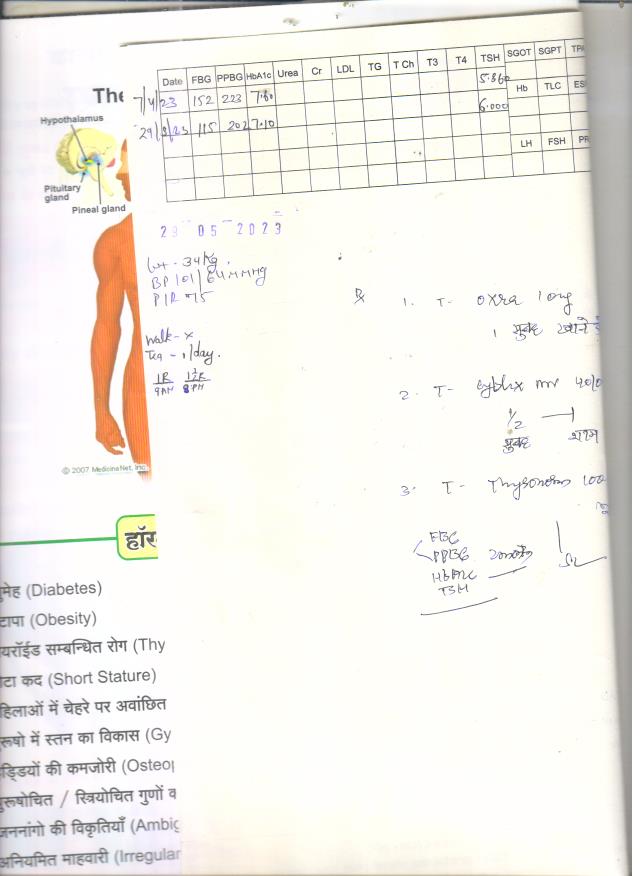 The
Hypothalamus
Pituitary
gland
Pineal gland
© 2007 MedicineNet, Inc.
Date FBG PPBG HbA1c Urea Cr LDL TG T Ch T3 T4 TSH SGOT SGPT
7/4/23 152 223 7.80 5.860
Hb TLC
29/ /23 115 202 7.10 6.000
LH FSH
29 05 2023
Wt - 34 kg.
BP 101/64 mmHg
Walk - x
Tea - 1/day.
1R 1½R
9AM 8PM
1. T- Oxra 10mg
1 सुबह खाने
2. T-
1/2 1
सुबह शाम
3. T- 100
FBG
PPBG
HbA1c
TSH
हॉर
मेह (Diabetes)
टापा (Obesity)
यरॉईड सम्बन्धित रोग (Thy
टा कद (Short Stature)
हिलाओं में चेहरे पर अवांछित
रूषो में स्तन का विकास (Gy
ड्डियों की कमजोरी (Osteo
रूषोचित / स्त्रियोचित गुणों व
जननांगो की विकृतियाँ (Ambig
अनियमित माहवारी (Irregular